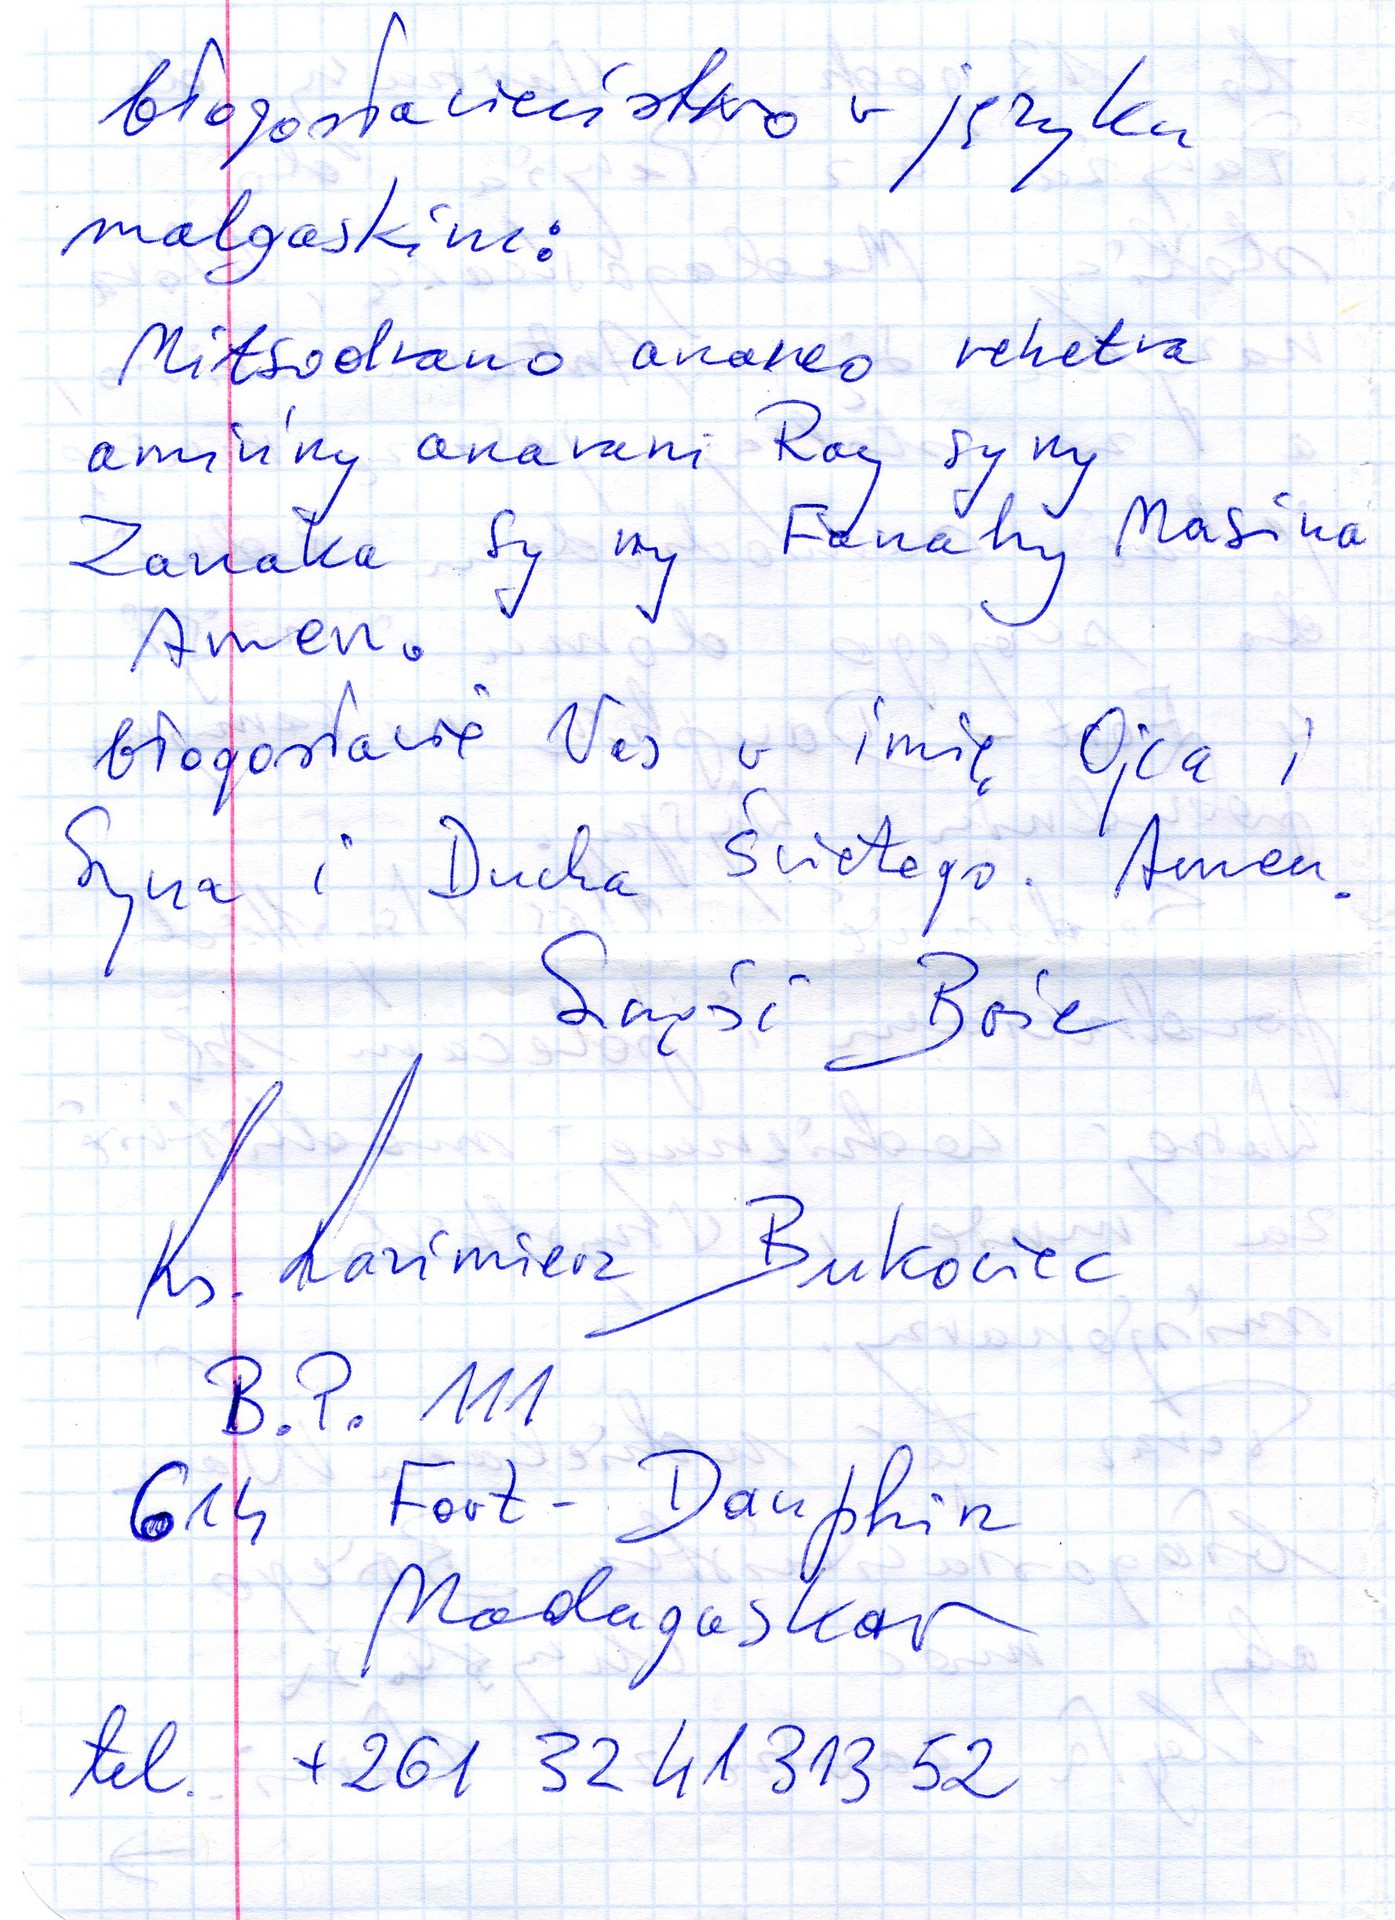 błogosławieństwo w języku
malgaskim:
Mitsodrano anareo rehetra
amin'ny anarani Ray sy ny
Zanaka sy ny Fanahy Masina
Amen.
błogosławię Was w imię Ojca i
Syna i Ducha Świętego. Amen.
Szczęść Boże
Ks. Kazimierz Bukowiec
B.P. 111
614 Fort-Dauphin
Madagaskar
tel. +261 32 41 313 52